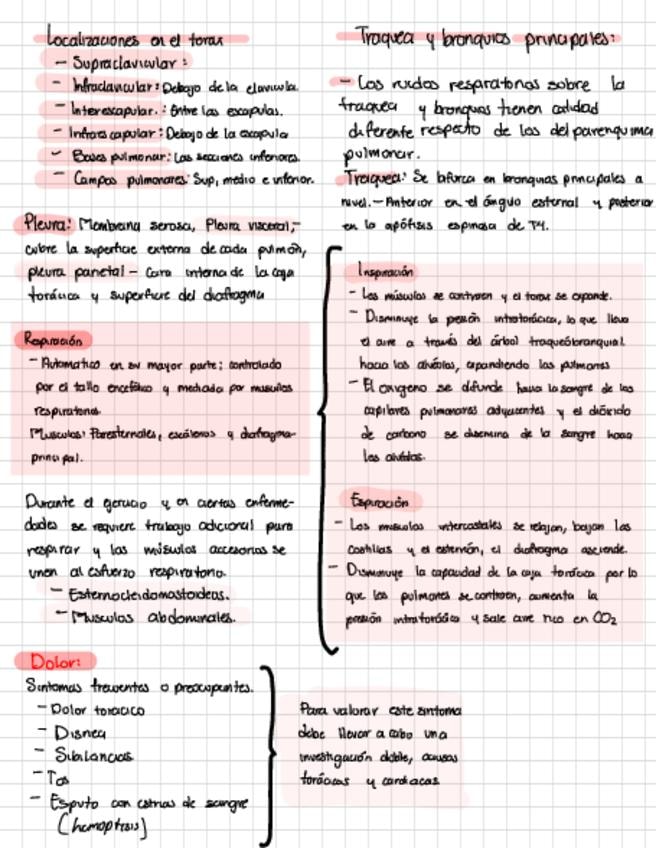 Localizaciones en el torax
- Supraclavicular:
- Infraclavicular: Debajo de la clavicula.
- Interescapular.: Entre las escapulas.
- Infraescapular: Debajo de la escapula
- Bases pulmonar: Las secciones inferiores.
- Campos pulmonares: Sup, medio e inferior.
Pleura: Membrana serosa, Pleura visceral,-
cubre la superficie externa de cada pulmón,
pleura parietal - Cara interna de la caja
torácica y superficie del diafragma
Respiración
- Automatico en su mayor parte; controlado
por el tallo encefálico y mediada por musculos
respiratorios.
Musculos: Paresternales, escálenos y diafragma-
principal.
Durante el ejercicio y en ciertas enferme-
dades se requiere trabajo adicional para
respirar y los músculos accesorios se
unen al esfuerzo respiratorio.
- Esternocleidomastoideos.
- Musculos abdominales.
Dolor:
Sintomas frecuentes o preocupantes.
- Dolor toracico
- Disnea
- Sibilancias
- Tos
- Esputo con estrias de sangre
(hemoptisis)
Traquea y bronquios principales:
- Los ruidos respiratorios sobre la
traquea y bronquios tienen calidad
diferente respecto de los del parenquima
pulmonar.
Traquea: Se bifurca en bronquios principales a
nivel.- Anterior en el ángulo esternal y posterior
en la apófisis espinosa de T4.
Inspiración
- Los músculos se contraen y el torax se expande.
- Disminuye la presión intratorácica, lo que lleva
el aire a través del árbol traqueobronquial
hacia los alvéolos, expandiendo los pulmones
- El oxigeno se difunde hacia la sangre de los
capilares pulmonares adyacentes y el dióxido
de carbono se disemina de la sangre hacia
los alvéolos.
Espiración
- Los músculos intercostales se relajan, bajan las
costillas y el esternón, el diafragma asciende.
- Disminuye la capacidad de la caja torácica por lo
que los pulmones se contraen, aumenta la
presión intratorácica y sale aire rico en CO2
Para valorar este sintoma
debe llevar a cabo una
investigación doble, causas
torácicas y cardiacas.